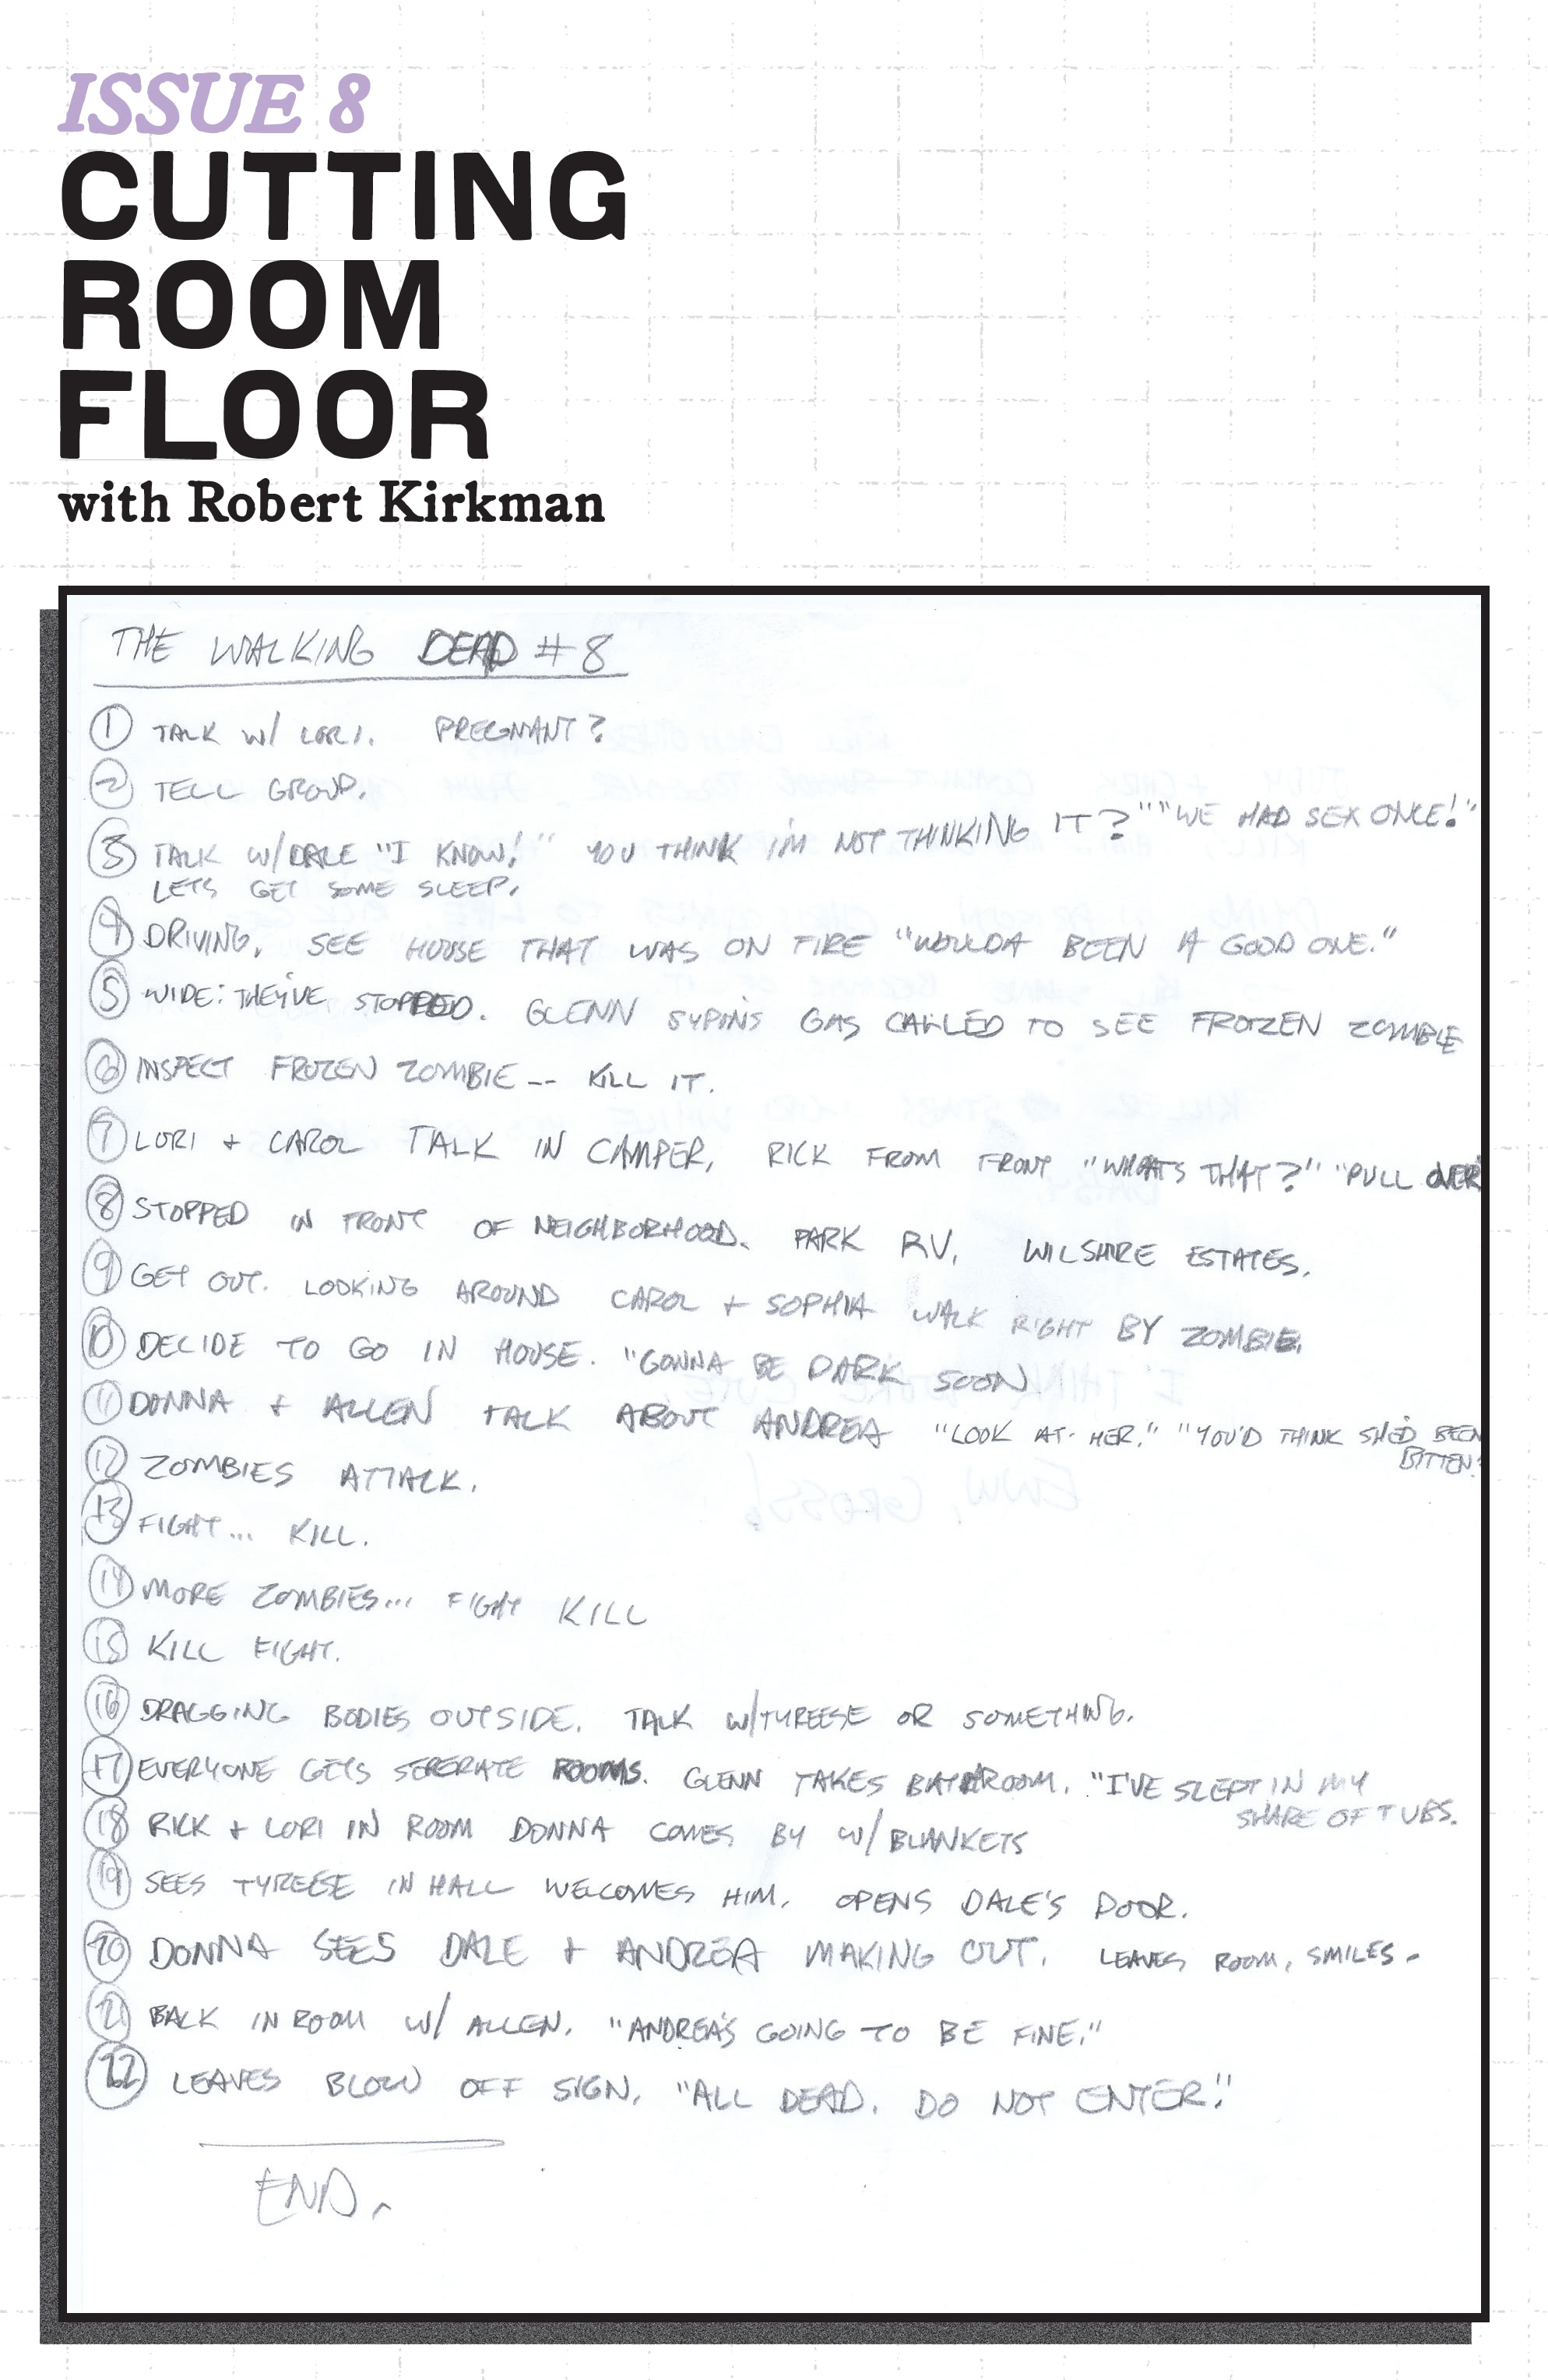 ISSUE 8
CUTTING
ROOM
FLOOR
with Robert Kirkman
THE WALKING DEAD #8
① TALK W/ LORI. PREGNANT?
② TELL GROUP.
③ TALK W/DALE "I KNOW!" YOU THINK I'M NOT THINKING IT?" "WE HAD SEX ONCE!"
LETS GET SOME SLEEP.
④ DRIVING. SEE HOUSE THAT WAS ON FIRE "WOULDA BEEN A GOOD ONE."
⑤ WIDE: THEY'VE STOPPED. GLENN SYPINS GAS CALLED TO SEE FROZEN ZOMBIE
⑥ INSPECT FROZEN ZOMBIE -- KILL IT.
⑦ LORI + CAROL TALK IN CAMPER, RICK FROM FRONT "WHAT'S THAT?" "PULL OVER
⑧ STOPPED IN FRONT OF NEIGHBORHOOD. PARK RV. WILSHIRE ESTATES.
⑨ GET OUT. LOOKING AROUND CAROL + SOPHIA WALK RIGHT BY ZOMBIE.
⑩ DECIDE TO GO IN HOUSE. "GONNA BE DARK SOON
⑪ DONNA + ALLEN TALK ABOUT ANDREA "LOOK AT HER." "YOU'D THINK SHE'D BEEN
BITTEN."
⑫ ZOMBIES ATTACK.
⑬ FIGHT... KILL.
⑭ MORE ZOMBIES... FIGHT KILL
⑮ KILL FIGHT.
⑯ DRAGGING BODIES OUTSIDE. TALK W/TYREESE OR SOMETHING.
⑰ EVERYONE GETS SEPERATE ROOMS. GLENN TAKES BATHROOM. "I'VE SLEPT IN MY
SHARE OF TUBS.
⑱ RICK + LORI IN ROOM DONNA COMES BY W/ BLANKETS
⑲ SEES TYREESE IN HALL WELCOMES HIM. OPENS DALE'S DOOR.
⑳ DONNA SEES DALE + ANDREA MAKING OUT. LEAVES ROOM, SMILES.
㉑ BACK IN ROOM W/ ALLEN. "ANDREA'S GOING TO BE FINE."
㉒ LEAVES BLOW OFF SIGN. "ALL DEAD. DO NOT ENTER!"
END.